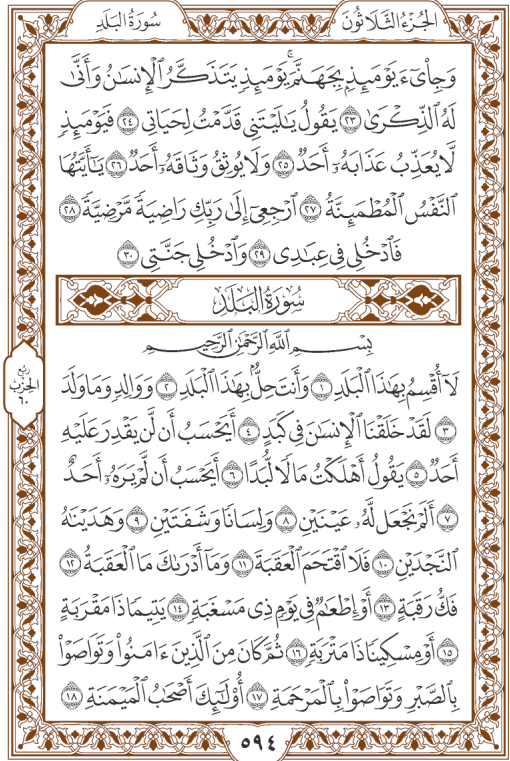 الجُزْءُ الثَّلَاثُونَ
سُورَةُ البَلَدِ
وَجِا۟ىٓءَ يَوْمَئِذِۭ بِجَهَنَّمَ ۚ يَوْمَئِذٍ يَتَذَكَّرُ ٱلْإِنسَـٰنُ وَأَنَّىٰ
لَهُ ٱلذِّكْرَىٰ ٢٣ يَقُولُ يَـٰلَيْتَنِى قَدَّمْتُ لِحَيَاتِى ٢٤ فَيَوْمَئِذٍ
لَّا يُعَذِّبُ عَذَابَهُۥٓ أَحَدٌ ٢٥ وَلَا يُوثِقُ وَثَاقَهُۥٓ أَحَدٌ ٢٦ يَـٰٓأَيَّتُهَا
ٱلنَّفْسُ ٱلْمُطْمَئِنَّةُ ٢٧ ٱرْجِعِىٓ إِلَىٰ رَبِّكِ رَاضِيَةً مَّرْضِيَّةً ٢٨
فَٱدْخُلِى فِى عِبَـٰدِى ٢٩ وَٱدْخُلِى جَنَّتِى ٣٠
سُورَةُ البَلَدِ
بِسْمِ ٱللَّهِ ٱلرَّحْمَـٰنِ ٱلرَّحِيمِ
لَآ أُقْسِمُ بِهَـٰذَا ٱلْبَلَدِ ١ وَأَنتَ حِلٌّۢ بِهَـٰذَا ٱلْبَلَدِ ٢ وَوَالِدٍ وَمَا وَلَدَ
٣ لَقَدْ خَلَقْنَا ٱلْإِنسَـٰنَ فِى كَبَدٍ ٤ أَيَحْسَبُ أَن لَّن يَقْدِرَ عَلَيْهِ
أَحَدٌ ٥ يَقُولُ أَهْلَكْتُ مَالًا لُّبَدًا ٦ أَيَحْسَبُ أَن لَّمْ يَرَهُۥٓ أَحَدٌ
٧ أَلَمْ نَجْعَل لَّهُۥ عَيْنَيْنِ ٨ وَلِسَانًا وَشَفَتَيْنِ ٩ وَهَدَيْنَـٰهُ
ٱلنَّجْدَيْنِ ١٠ فَلَا ٱقْتَحَمَ ٱلْعَقَبَةَ ١١ وَمَآ أَدْرَىٰكَ مَا ٱلْعَقَبَةُ ١٢
فَكُّ رَقَبَةٍ ١٣ أَوْ إِطْعَـٰمٌ فِى يَوْمٍ ذِى مَسْغَبَةٍ ١٤ يَتِيمًا ذَا مَقْرَبَةٍ
١٥ أَوْ مِسْكِينًا ذَا مَتْرَبَةٍ ١٦ ثُمَّ كَانَ مِنَ ٱلَّذِينَ ءَامَنُوا۟ وَتَوَاصَوْا۟
بِٱلصَّبْرِ وَتَوَاصَوْا۟ بِٱلْمَرْحَمَةِ ١٧ أُو۟لَـٰٓئِكَ أَصْحَـٰبُ ٱلْمَيْمَنَةِ ١٨
ربع
الحزب
٦٠
٥٩٤